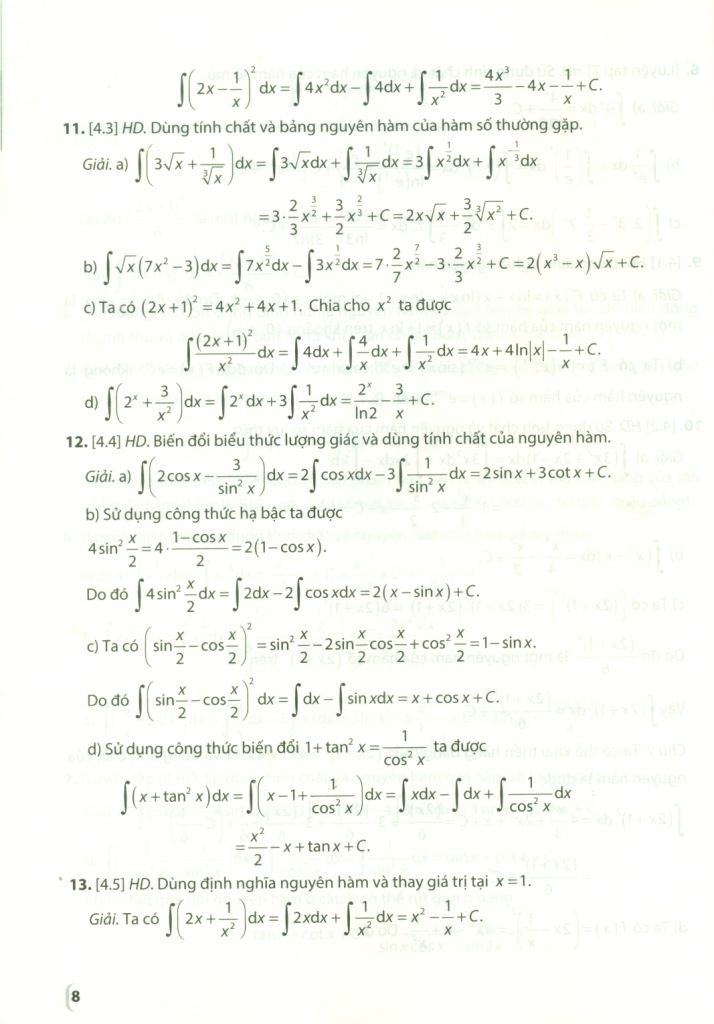 ∫(2x − 1/x)² dx = ∫4x²dx − ∫4dx + ∫1/x² dx = 4x³/3 − 4x − 1/x + C.
11. [4.3] HD. Dùng tính chất và bảng nguyên hàm của hàm số thường gặp.
Giải. a) ∫(3√x + 1/∛x)dx = ∫3√xdx + ∫1/∛x dx = 3∫x^(1/2)dx + ∫x^(−1/3)dx
= 3·2/3 x^(3/2) + 3/2 x^(2/3) + C = 2x√x + 3/2 ∛x² + C.
b) ∫√x(7x² − 3)dx = ∫7x^(5/2)dx − ∫3x^(1/2)dx = 7·2/7 x^(7/2) − 3·2/3 x^(3/2) + C = 2(x³ − x)√x + C.
c) Ta có (2x + 1)² = 4x² + 4x + 1. Chia cho x² ta được
∫(2x + 1)²/x² dx = ∫4dx + ∫4/x dx + ∫1/x² dx = 4x + 4ln|x| − 1/x + C.
d) ∫(2ˣ + 3/x²)dx = ∫2ˣdx + 3∫1/x² dx = 2ˣ/ln2 − 3/x + C.
12. [4.4] HD. Biến đổi biểu thức lượng giác và dùng tính chất của nguyên hàm.
Giải. a) ∫(2cosx − 3/sin²x)dx = 2∫cosxdx − 3∫1/sin²x dx = 2sinx + 3cotx + C.
b) Sử dụng công thức hạ bậc ta được
4sin² x/2 = 4·(1 − cosx)/2 = 2(1 − cosx).
Do đó ∫4sin² x/2 dx = ∫2dx − 2∫cosxdx = 2(x − sinx) + C.
c) Ta có (sin x/2 − cos x/2)² = sin² x/2 − 2sin x/2 cos x/2 + cos² x/2 = 1 − sinx.
Do đó ∫(sin x/2 − cos x/2)² dx = ∫dx − ∫sinxdx = x + cosx + C.
d) Sử dụng công thức biến đổi 1 + tan²x = 1/cos²x ta được
∫(x + tan²x)dx = ∫(x − 1 + 1/cos²x)dx = ∫xdx − ∫dx + ∫1/cos²x dx
= x²/2 − x + tanx + C.
13. [4.5] HD. Dùng định nghĩa nguyên hàm và thay giá trị tại x = 1.
Giải. Ta có ∫(2x + 1/x²)dx = ∫2xdx + ∫1/x² dx = x² − 1/x + C.
8